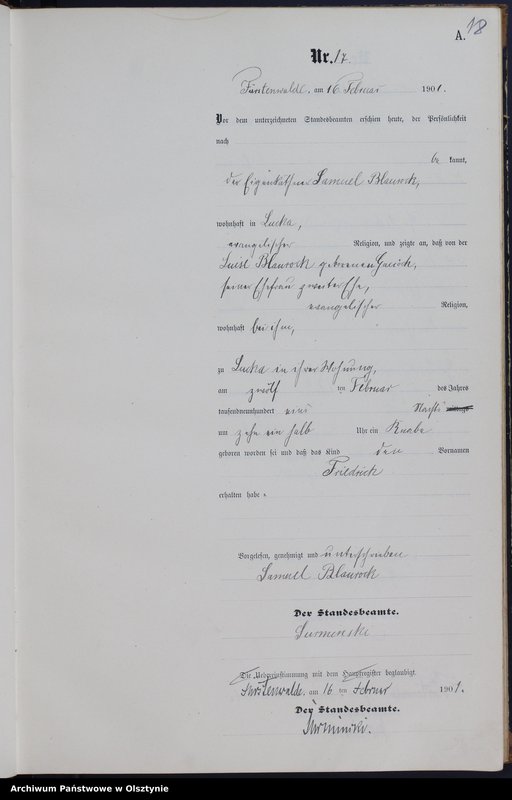 A.
18
Nr. 17.
Fürstenwalde, am 16 Februar 1901.
Vor dem unterzeichneten Standesbeamten erschien heute, der Persönlichkeit
nach
be kannt,
der Eigenkäthner Samuel Blaurock,
wohnhaft in Lucka,
evangelischer Religion, und zeigte an, daß von der
Luise Blaurock geborenen
seiner Ehefrau zweiter Ehe,
evangelischer Religion,
wohnhaft bei ihm,
zu Lucka in ihrer Wohnung,
am zwölf ten Februar des Jahres
tausendneunhundert eins Nachts
um zehn ein halb Uhr ein Knabe
geboren worden sei und daß das Kind den Vornamen
Friedrich
erhalten habe.
Vorgelesen, genehmigt und unterschrieben
Samuel Blaurock
Der Standesbeamte.
Surminski
Die Uebereinstimmung mit dem Hauptregister beglaubigt.
Fürstenwalde, am 16 ten Februar 1901.
Der Standesbeamte.
Surminski.
Archiwum Państwowe w Olsztynie